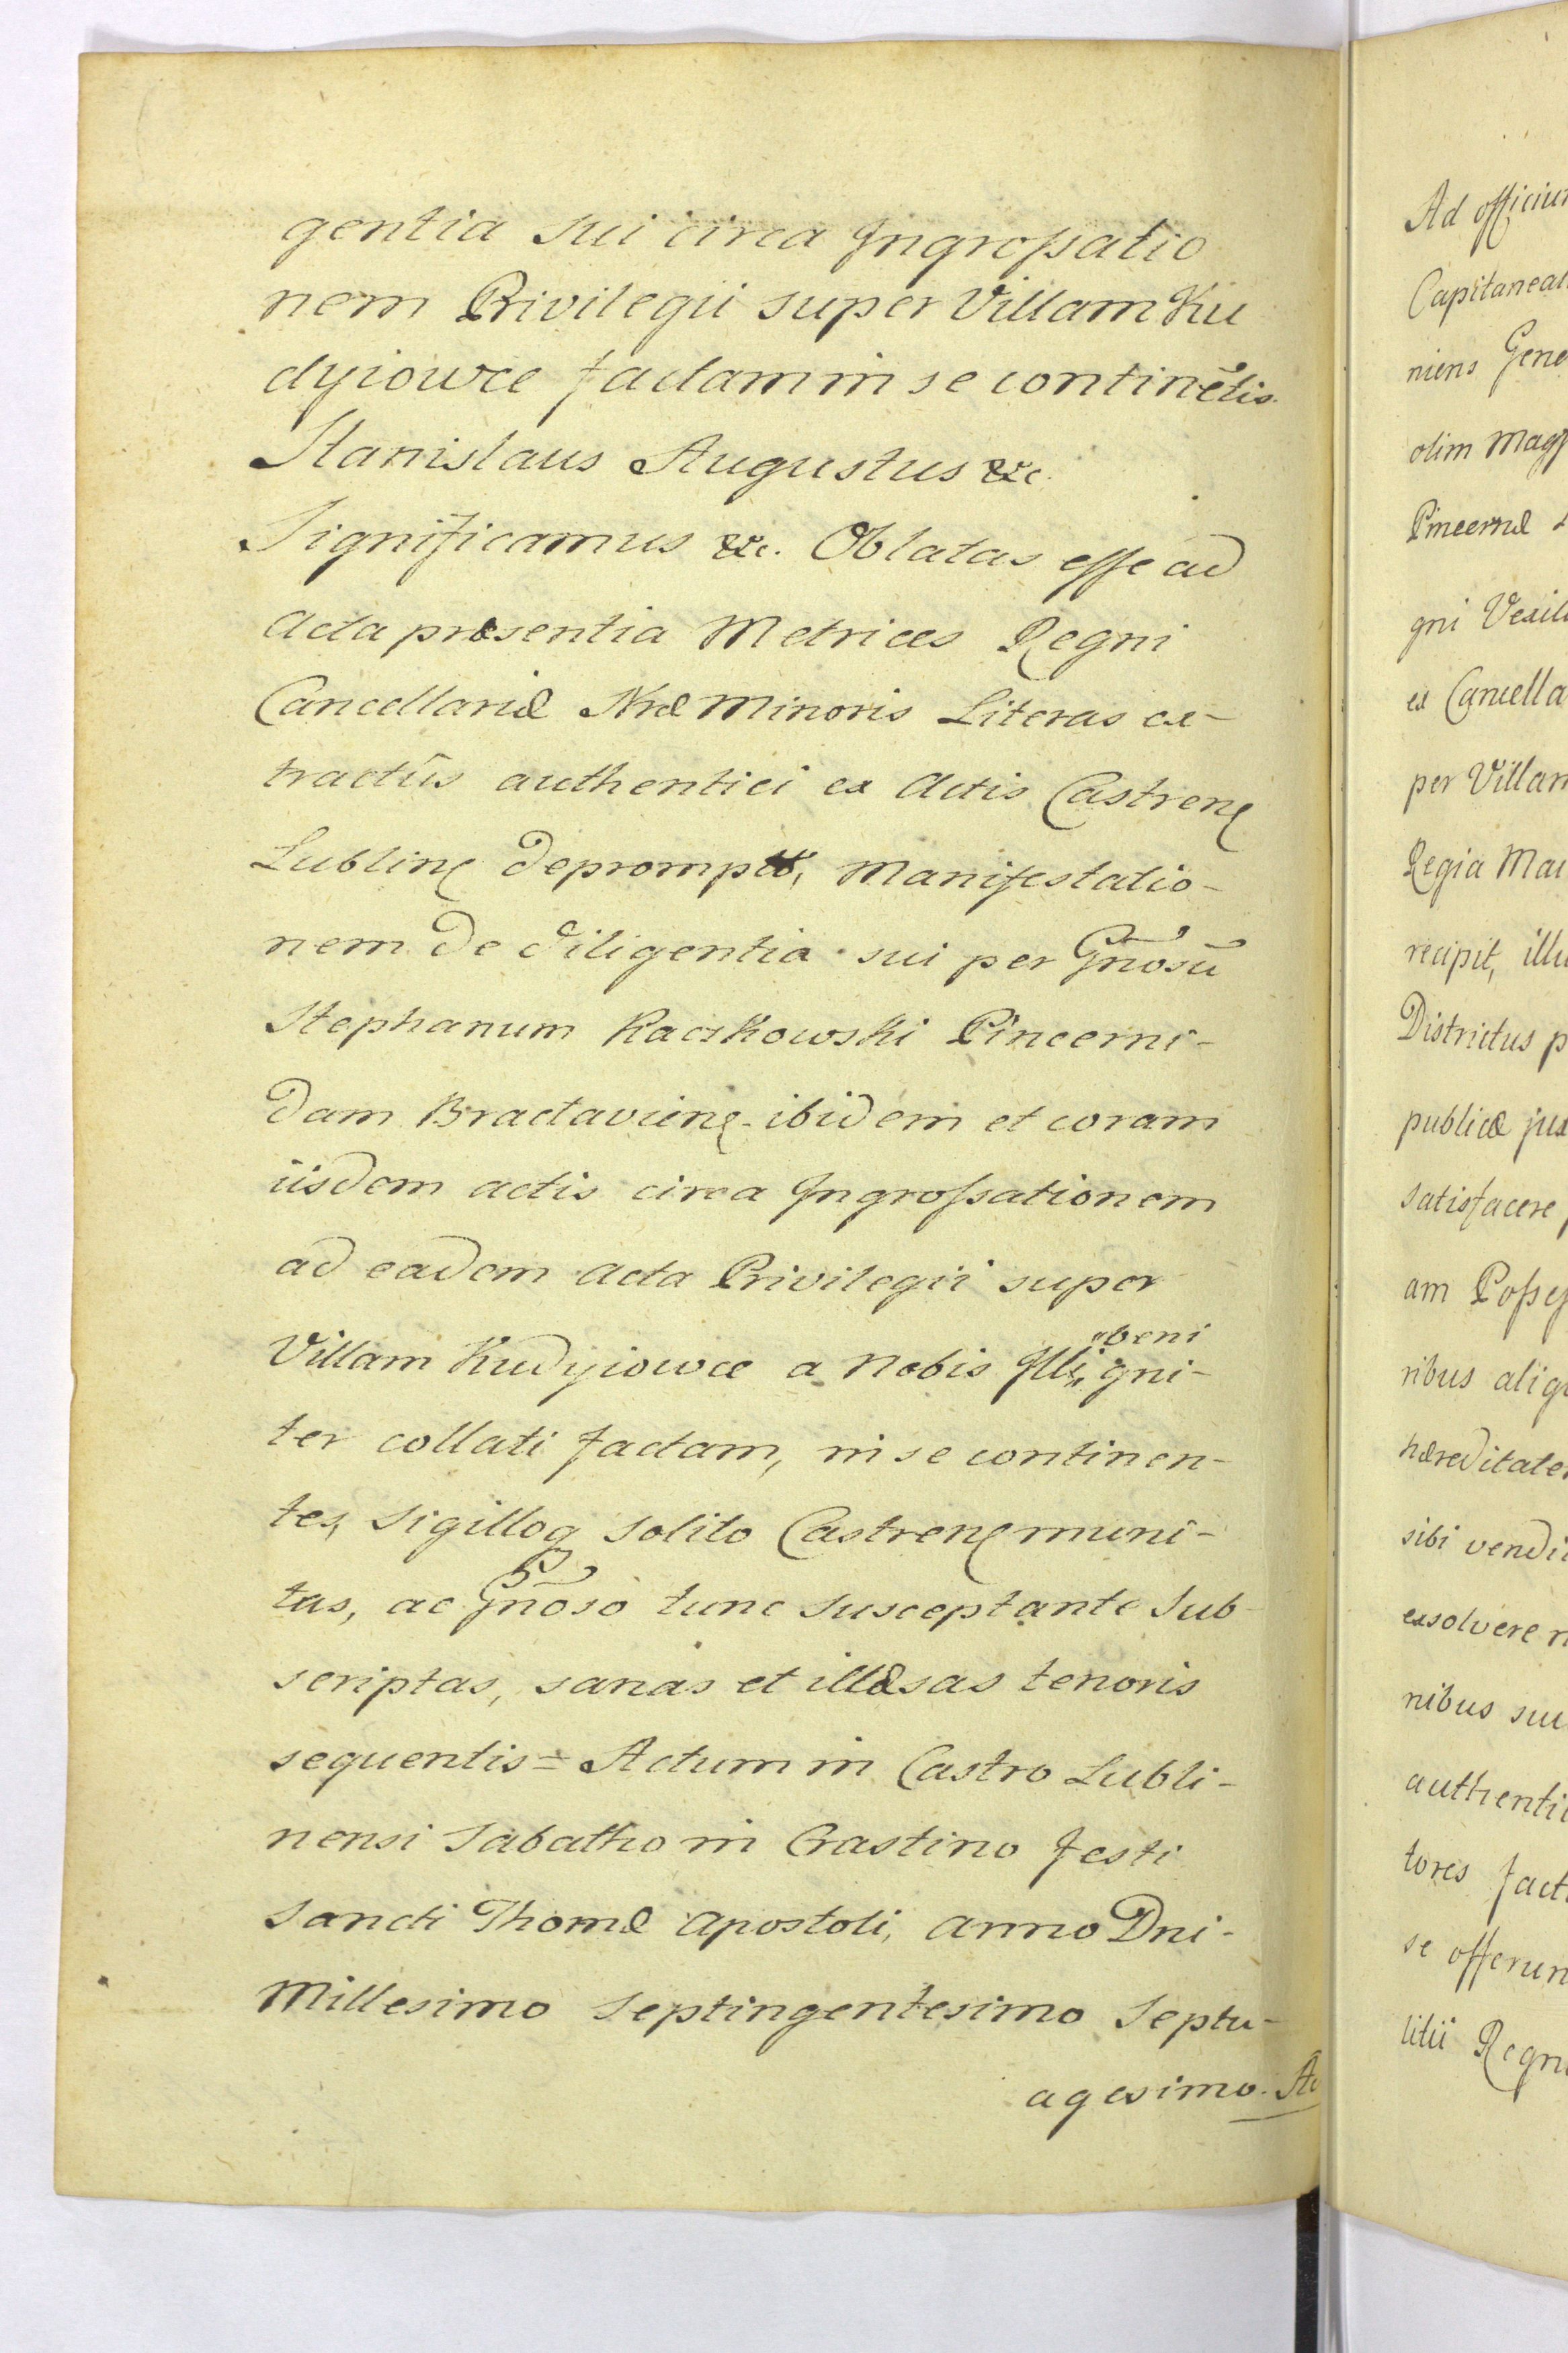 gentia sui circa Ingrossatio
nem Privilegii super Villam Ku
dyiowce factam in se continētis.
Stanislaus Augustus &c.
Significamus &c. Oblatas esse ad
Acta præsentia Metrices Regni
Cancellariæ Nræ Minoris Literas ex-
tractûs authentici ex Actis Castren
Lublin deprompti, Manifestatio-
nem de diligentia sui per Gnosū
Stephanum Raczkowski Pincerni-
dam Braclavien. ibidem et coram
iisdem actis circa Ingrossationem
ad eadem Acta Privilegii super
Villam Kudyiowce a Nobis Illi beni gni-
ter collati factam, in se continen-
tes, Sigilloq solito Castren muni-
tas, ac Gnoso tunc susceptante sub-
scriptas, sanas et illæsas tenoris
sequentis = Actum in Castro Lubli-
nensi Sabatho in Crastino festi
Sancti Thomæ Apostoli, Anno Dni-
Millesimo Septingentesimo Septu-
agesimo. Ad
Ad officium
Capitanea
niens Gene
olim Mag
Pincernæ
gni Vexil
ex Cancella
per Villam
Regia Mai
recipit, illu
Districtus p
publicæ jux
satisfacere
am Posses
ribus aliq
hæreditate
sibi vendi
exsolvere n
nibus sui
authenti
tores fact
se offerun
litii Regni